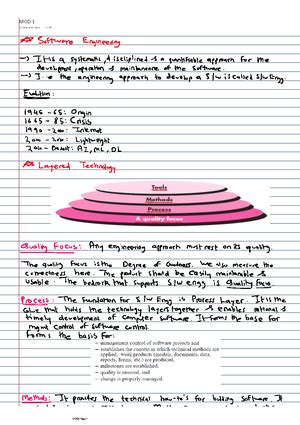 MOD 1
Software Engineering
→ It is a systematic, disciplined & a quantifiable approach for the
development, operation & maintenance of the software.
→ I.e the engineering approach to develop a S/W is called S/W Engg.
Evolution:
1945 - 65: Origin
1665 - 85: Crisis
1990 - 200: Internet
2000 - 200: Lightweight
2010 - Present: AI, ML, DL
Layered Technology
Tools
Methods
Process
A quality focus
Quality Focus: Any engineering approach must rest on its quality.
The quality focus is the Degree of Goodness. We also measure the
correctness here. The product should be easily maintainable &
usable. The bedrock that supports S/W engg. is Quality Focus.
Process: The foundation for S/W Eng is Process Layer. It is the
Glue that holds the technology layers together & enables rational &
timely development of Computer Software. It forms the base for
mgmt Control of software control.
Forms the basis for:
— management control of software projects and
— establishes the context in which technical methods are
applied, work products (models, documents, data,
reports, forms, etc.) are produced.
— milestones are established.
— quality is ensured, and
— change is properly managed.
Methods: It provides the technical how-to's for building software. It